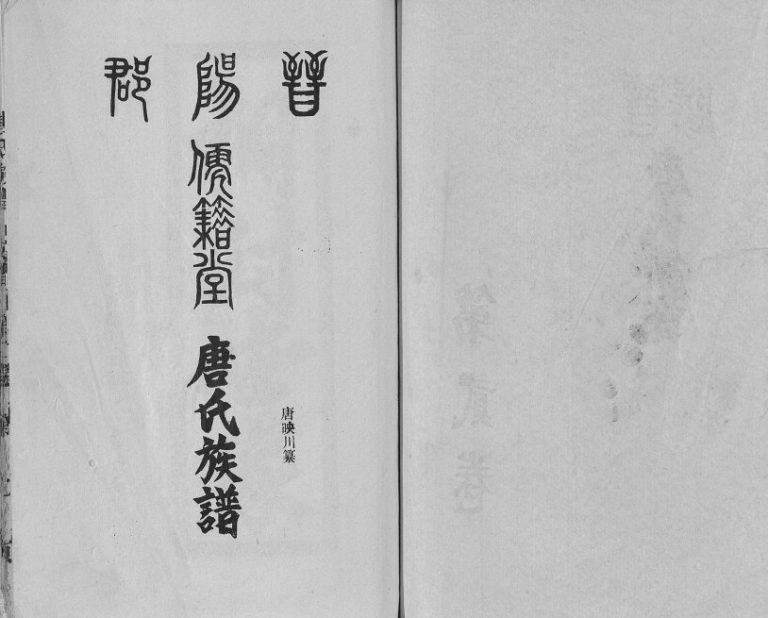 晉陽郡
儒籍堂
唐氏族譜
唐映川纂
第貳卷